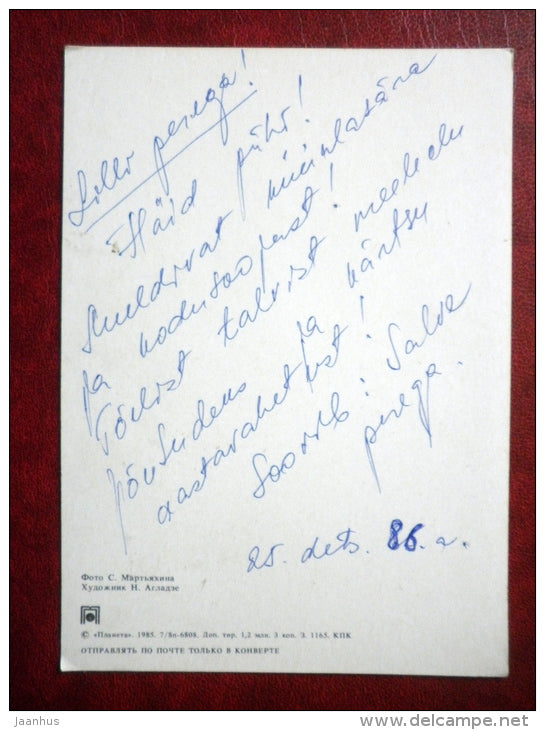 Lilli perega!
Häid pühi!
Sueldivat küünlasära
ja kodusoojust!
Tõelist talvist meeleolu
jõuludeks ja kärtsu
aastavahetust!
Soovib: Salve
perega.
25. dets. 86. a.
Фото С. Мартьяхина
Художник Н. Агладзе
© «Планета». 1985. 7/8п-6808. Доп. тир. 1,2 млн. 3 коп. З. 1165. КПК
ОТПРАВЛЯТЬ ПО ПОЧТЕ ТОЛЬКО В КОНВЕРТЕ
jaanhus
delcampe.net